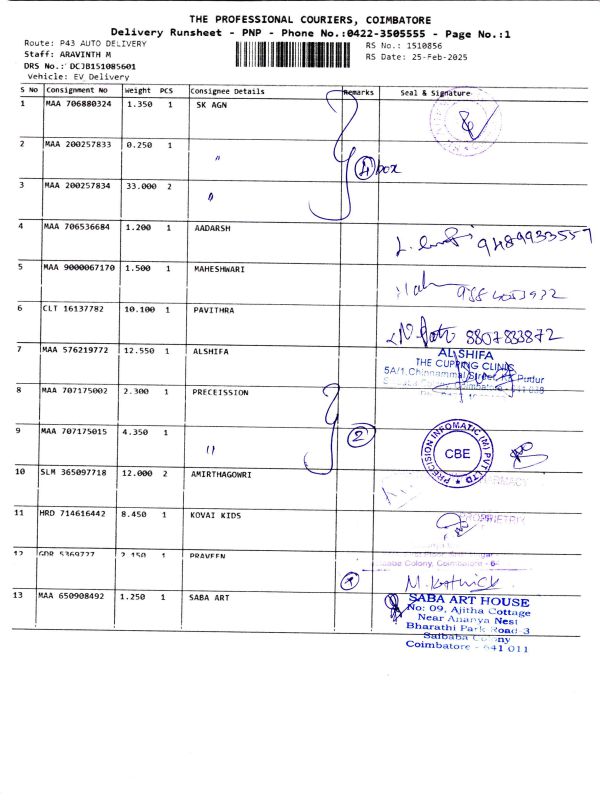 THE PROFESSIONAL COURIERS, COIMBATORE
Delivery Runsheet - PNP - Phone No.:0422-3505555 - Page No.:1
Route: P43 AUTO DELIVERY
Staff: ARAVINTH M
DRS No.: DCJB151085601
Vehicle: EV Delivery
RS No.: 1510856
RS Date: 25-Feb-2025
S No Consignment No Weight PCS Consignee Details Remarks Seal & Signature
1 MAA 706880324 1.350 1 SK AGN
2 MAA 200257833 0.250 1 "
4 box
3 MAA 200257834 33.000 2 "
4 MAA 706536684 1.200 1 AADARSH 9489933557
5 MAA 9000067170 1.500 1 MAHESHWARI
6 CLT 16137782 10.100 1 PAVITHRA 8807833872
7 MAA 576219772 12.550 1 ALSHIFA
ALSHIFA
THE CUPPING CLINIC
5A/1, Chinnammal Street, KK Pudur
8 MAA 707175002 2.300 1 PRECEISSION
9 MAA 707175015 4.350 1 "
2
PRECISION INFOMATIC (M) PVT LTD
CBE
10 SLM 365097718 12.000 2 AMIRTHAGOWRI
11 HRD 714616442 8.450 1 KOVAI KIDS
12 GDR 5369727 2.150 1 PRAVEEN
Colony, Coimbatore - 6
M. Karthick
13 MAA 650908492 1.250 1 SABA ART
SABA ART HOUSE
No: 09, Ajitha Cottage
Near Ananya Nest
Bharathi Park Road 3
Saibaba Colony
Coimbatore - 641 011